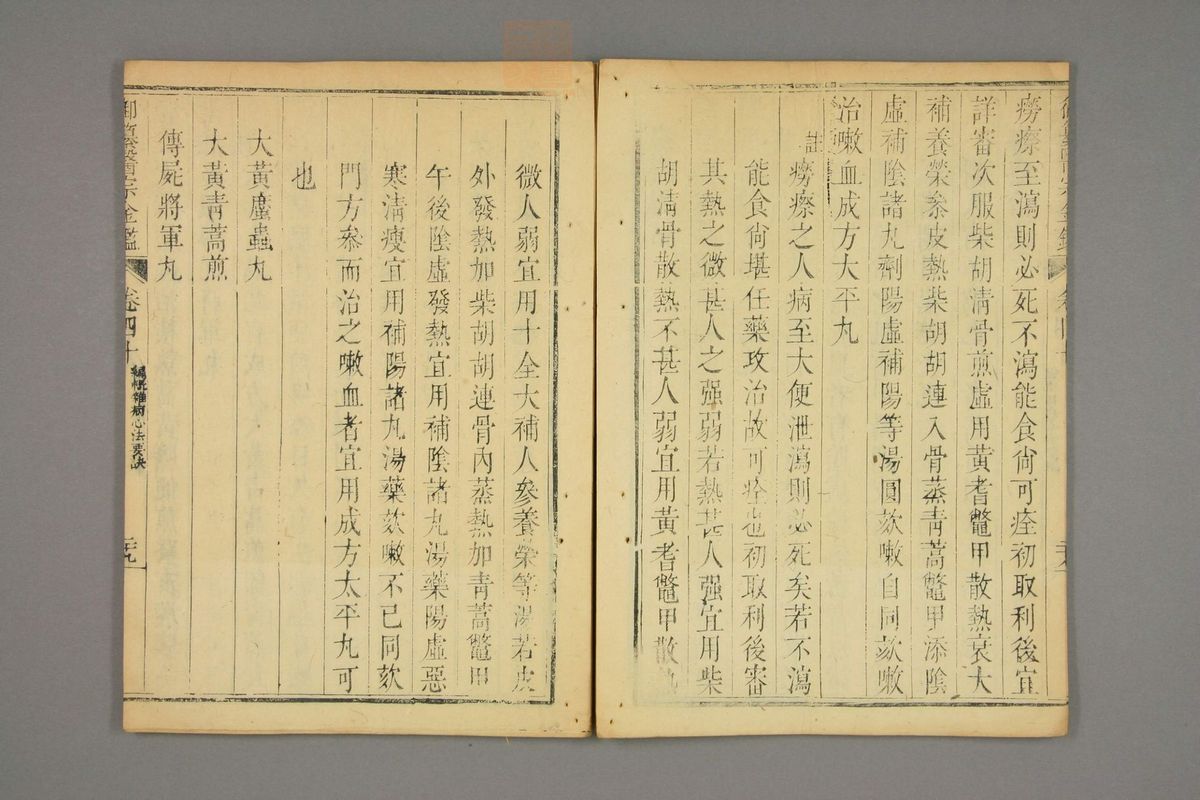 癆瘵至瀉則必死不瀉能食尚可痊初取利後宜
詳審次服柴胡淸骨煎虛用黃耆鼈甲散熱衰大
補養榮叅皮熱柴胡胡連入骨蒸靑蒿鼈甲添陰
虛補陰諸丸劑陽虛補陽等湯圓欬嗽自同欬嗽
治嗽血成方大平丸
註
癆瘵之人病至大便泄瀉則必死矣若不瀉
能食尚堪任藥攻治故可痊也初取利後審
其熱之微甚人之强弱若熱甚人强宜用柴
胡淸骨散熱不甚人弱宜用黃耆鼈甲散熱
微人弱宜用十全大補人參養榮等湯若皮
外發熱加柴胡胡連骨內蒸熱加靑蒿鼈甲
午後陰虛發熱宜用補陰諸丸湯藥陽虛惡
寒淸瘦宜用補陽諸丸湯藥欬嗽不已同欬
門方叅而治之嗽血者宜用成方太平丸可
也
大黃䗪蟲丸
大黃靑蒿煎
傳屍將軍丸
御纂醫宗金鑑
卷四十
編輯雜病心法要訣